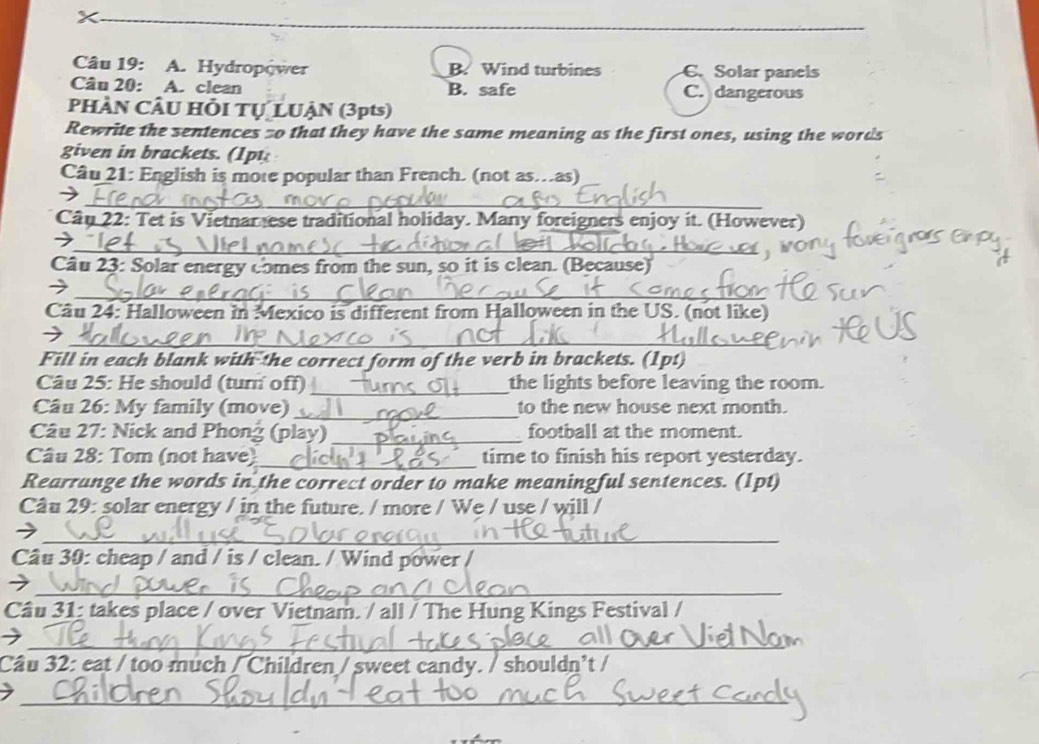 Câu 19: A. Hydropower B. Wind turbines C. Solar panels
Câu 20: A. clean B. safe C. dangerous
PHẦN CÂU HỎI TỰ LUẬN (3pts)
Rewrite the sentences so that they have the same meaning as the first ones, using the words
given in brackets. (1pt)
Câu 21: English is more popular than French. (not as…as)
→ not as more popular as English
Câu 22: Tet is Vietnamese traditional holiday. Many foreigners enjoy it. (However)
→ Tet is Vietnamese traditional holiday. However, many foreigners enjoy it
Câu 23: Solar energy comes from the sun, so it is clean. (Because)
→ Solar energy is clean because it comes from the sun
Câu 24: Halloween in Mexico is different from Halloween in the US. (not like)
→ Halloween in Mexico is not like Halloween in the US
Fill in each blank with the correct form of the verb in brackets. (1pt)
Câu 25: He should (turn off) turns off the lights before leaving the room.
Câu 26: My family (move) will move to the new house next month.
Câu 27: Nick and Phong (play) playing football at the moment.
Câu 28: Tom (not have) didn't has time to finish his report yesterday.
Rearrange the words in the correct order to make meaningful sentences. (1pt)
Câu 29: solar energy / in the future. / more / We / use / will /
→ We will use more Solar energy in the future
Câu 30: cheap / and / is / clean. / Wind power /
→ Wind power is Cheap and clean
Câu 31: takes place / over Vietnam. / all / The Hung Kings Festival /
→ The Hung Kings Festival takes place all over Viet Nam
Câu 32: eat / too much / Children / sweet candy. / shouldn't /
→ Children Shouldn't eat too much Sweet candy